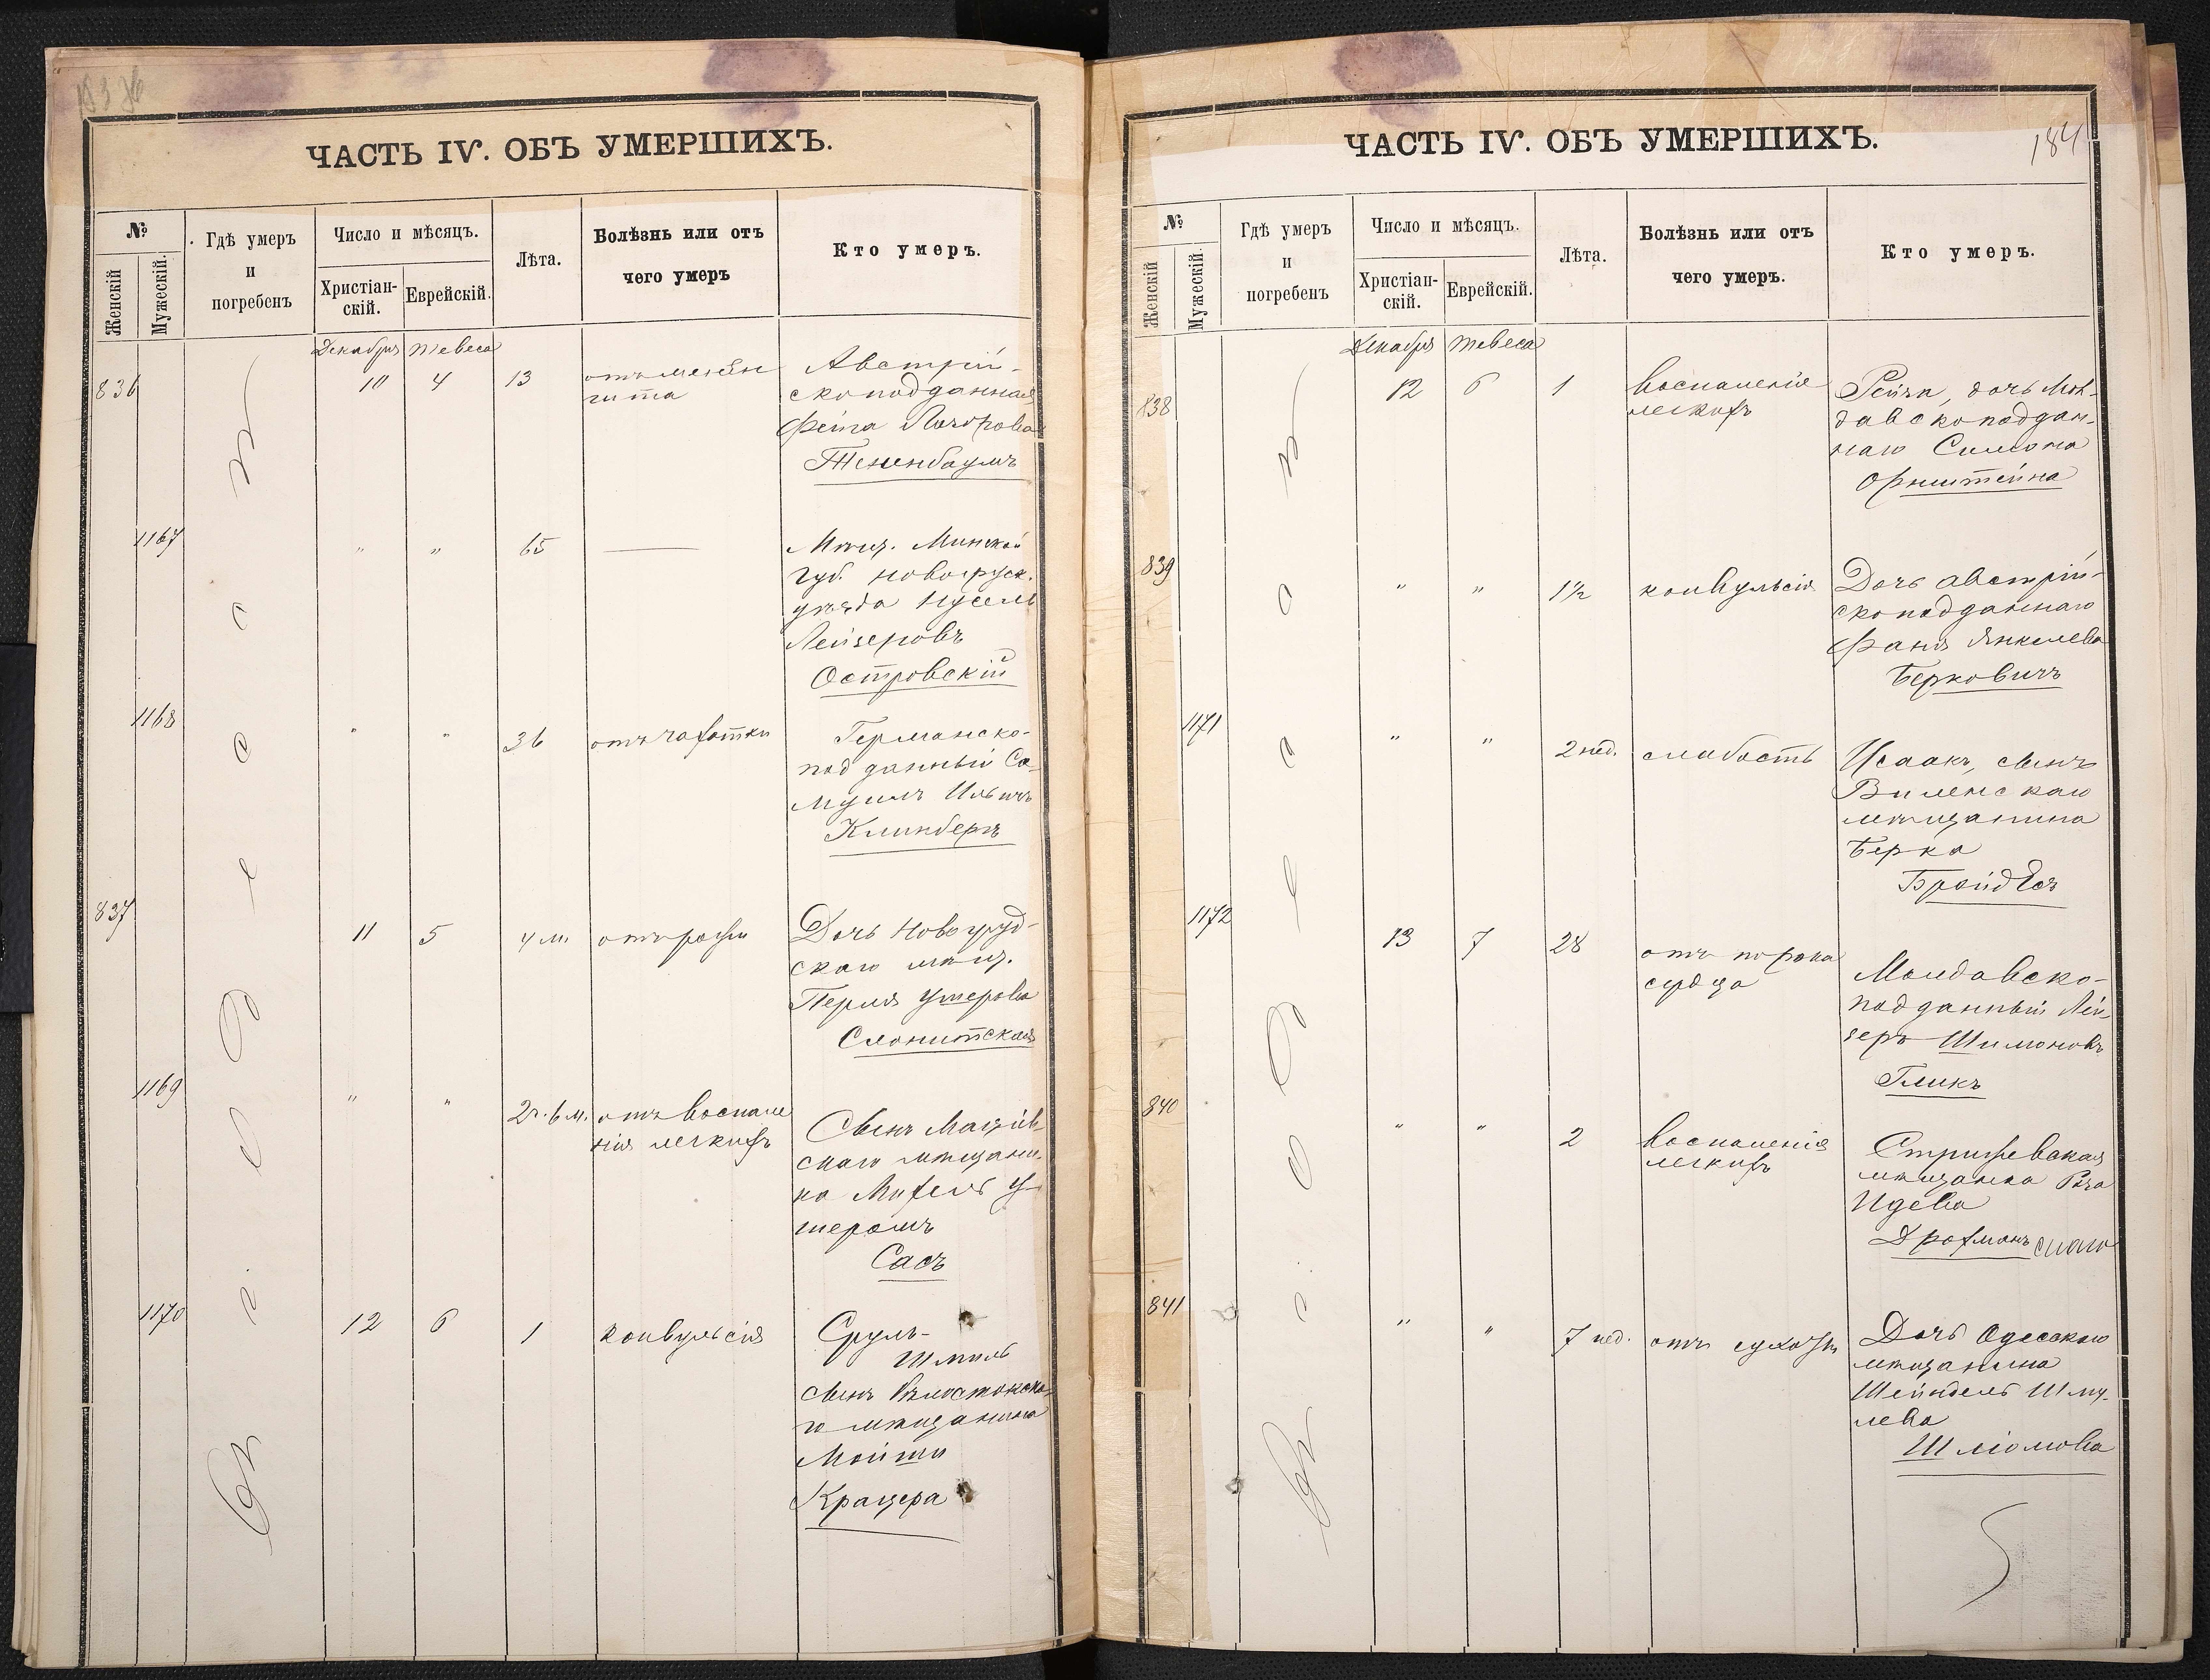 ЧАСТЬ IV. ОБЪ УМЕРШИХЪ.
№
Женскій
Мужескій.
Гдѣ умеръ
и
погребенъ
Число и мѣсяцъ.
Христіан-
скій.
Еврейскій.
Лѣта.
Болѣзнь или отъ
чего умеръ
Кто умеръ.
Декабря Тевеса
въ Одессѣ
836 10 4 13
Австрій-
скоподданная
Тененбаумъ
1167 " " 65 —
Мѣщ. Минской
губ. Новогруд.
уѣзда Нусель
Лейзеровъ
Островскій
1168 " " 36 отъ чахотки
Германско-
подданный Са-
муилъ
Клинбергъ
837 11 5 4 м. отъ рожи
Дочь Новогруд-
скаго мѣщ.
Перля Ушерова
Слонимская
1169 " " 2 г. 6 м. отъ воспале
нія легкихъ
Сынъ
скаго мѣщани-
на Михель У-
шеровъ
Сасъ
1170 12 6 1 конвульсія
Сруль-
Шмиль
сынъ Бѣлостокска-
го мѣщанина
Мойши
Крацера
ЧАСТЬ IV. ОБЪ УМЕРШИХЪ.
184
№
Женскій
Мужескій.
Гдѣ умеръ
и
погребенъ
Число и мѣсяцъ.
Христіан-
скій.
Еврейскій.
Лѣта.
Болѣзнь или отъ
чего умеръ.
Кто умеръ.
Декабря Тевеса
838 12 6 1 воспаленіе
легкихъ
дочь Мол-
давскоподдан-
наго Симона
Орнштейна
839 " " 1½ конвульсія
Дочь австрій-
скоподданнаго
Фаня Янкелева
Берковичъ
1171 " " 2 нед. слабость
Исаакъ, сынъ
Виленскаго
мѣщанина
Берка
1172 13 7 28 отъ порока
сердца
Молдавско-
подданный Лей-
зеръ Шимоновъ
Гликъ
840 " " 2 воспаленія
легкихъ
мѣщанка
841 " " 7 нед. отъ
Дочь Одесскаго
мѣщанина
Шейндель Шму-
лева
Шліомова